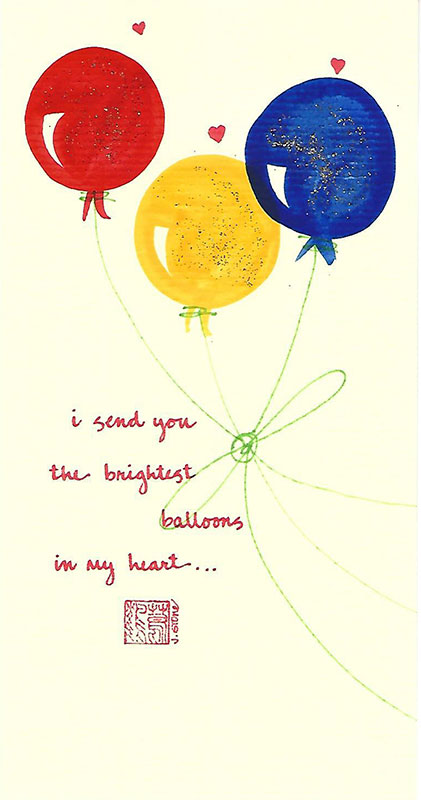 i send you
the brightest
balloons
in my heart...
J. STONE